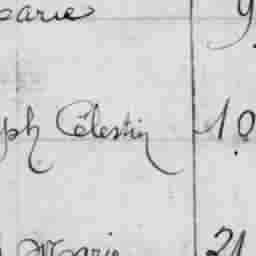 arie 9
ph Célestin 10
Marie 21